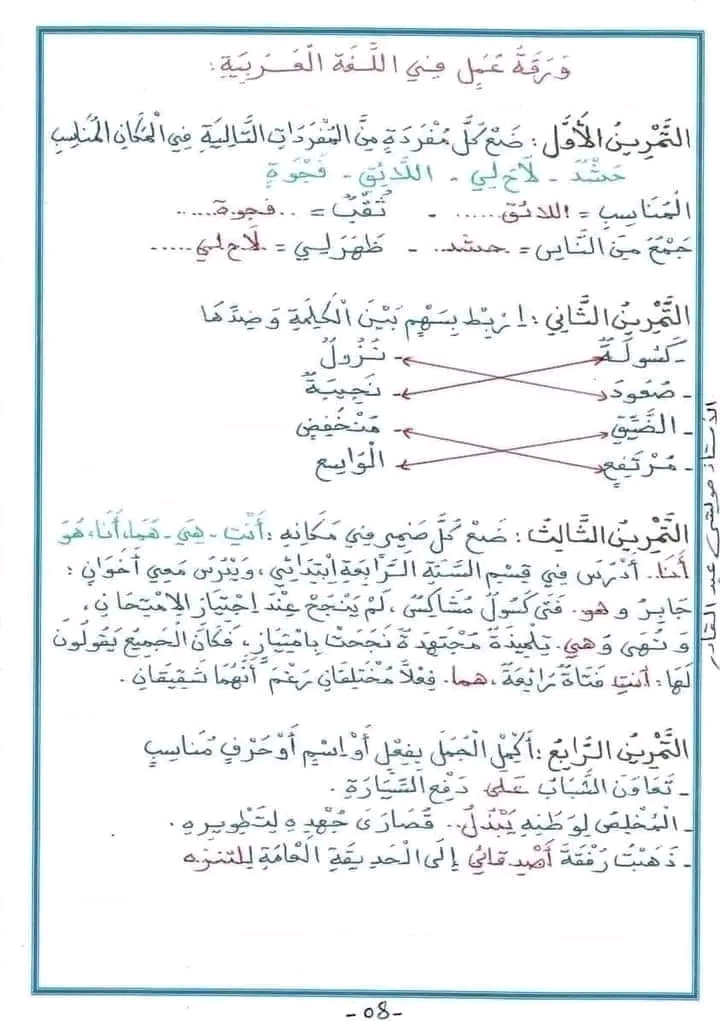 وَرَقَةُ عَمَلٍ فِي اللُّغَةِ الْعَرَبِيَّةِ:
التَّمْرِينُ الْأَوَّلُ: ضَعْ كُلَّ مُفْرَدَةٍ مِنَ الْمُفْرَدَاتِ التَّالِيَةِ فِي الْمَكَانِ الْمُنَاسِبِ
حَشْدٌ - لَاحَ لِي - اللَّائِقِ - فَجْوَةٍ
الْمُنَاسِبِ = اللائق..... - ثُقْبٌ = ..فجوة.....
جَمْعٌ مِنَ النَّاسِ = حشد.. - ظَهَرَ لِي = لَاحَ لِي.....
التَّمْرِينُ الثَّانِي: اِرْبِطْ بِسَهْمٍ بَيْنَ الْكَلِمَةِ وَضِدِّهَا
- كَسُولَةٌ - نُزُولٌ
- صُعُودَ - نَجِيبَةٌ
- الضَّيِّقِ - مُنْخَفِضٍ
- مُرْتَفِعٍ - الْوَاسِعِ
التَّمْرِينُ الثَّالِثُ: ضَعْ كُلَّ ضَمِيرٍ فِي مَكَانِهِ: أَنْتِ - هِيَ - هُمَا، أَنَا، هُوَ
أنا. أَدْرُسُ فِي قِسْمِ السَّنَةِ الرَّابِعَةِ ابْتِدَائِي، وَيَدْرُسُ مَعِي أَخَوَانِ:
جَابِرُ وَ هو. فَتًى كَسُولٌ مُشَاكِسٌ، لَمْ يَنْجَحْ عِنْدَ اِجْتِيَازِ الِامْتِحَانِ،
وَ نُهَى وَهي. تِلْمِيذَةٌ مُجْتَهِدَةٌ نَجَحَتْ بِامْتِيَازٍ، فَكَانَ الْجَمِيعُ يَقُولُونَ
لَهَا: أنتِ فَتَاةٌ رَائِعَةٌ، هما. فِعْلًا مُخْتَلِفَانِ رَغْمَ أَنَّهُمَا شَقِيقَانِ.
التَّمْرِينُ الرَّابِعُ: أَكْمِلِ الْجُمَلَ بِفِعْلٍ أَوْ اِسْمٍ أَوْ حَرْفٍ مُنَاسِبٍ
- تَعَاوَنَ الشَّبَابُ عَلَى دَفْعِ السَّيَّارَةِ.
- الْمُخْلِصُ لِوَطَنِهِ يَبْذُلُ.. قُصَارَى جُهْدِهِ لِتَطْوِيرِهِ.
- ذَهَبْتُ رُفْقَةَ أَصْدِقَائِي إِلَى الْحَدِيقَةِ الْعَامَّةِ لِلتنزه
- 08 -